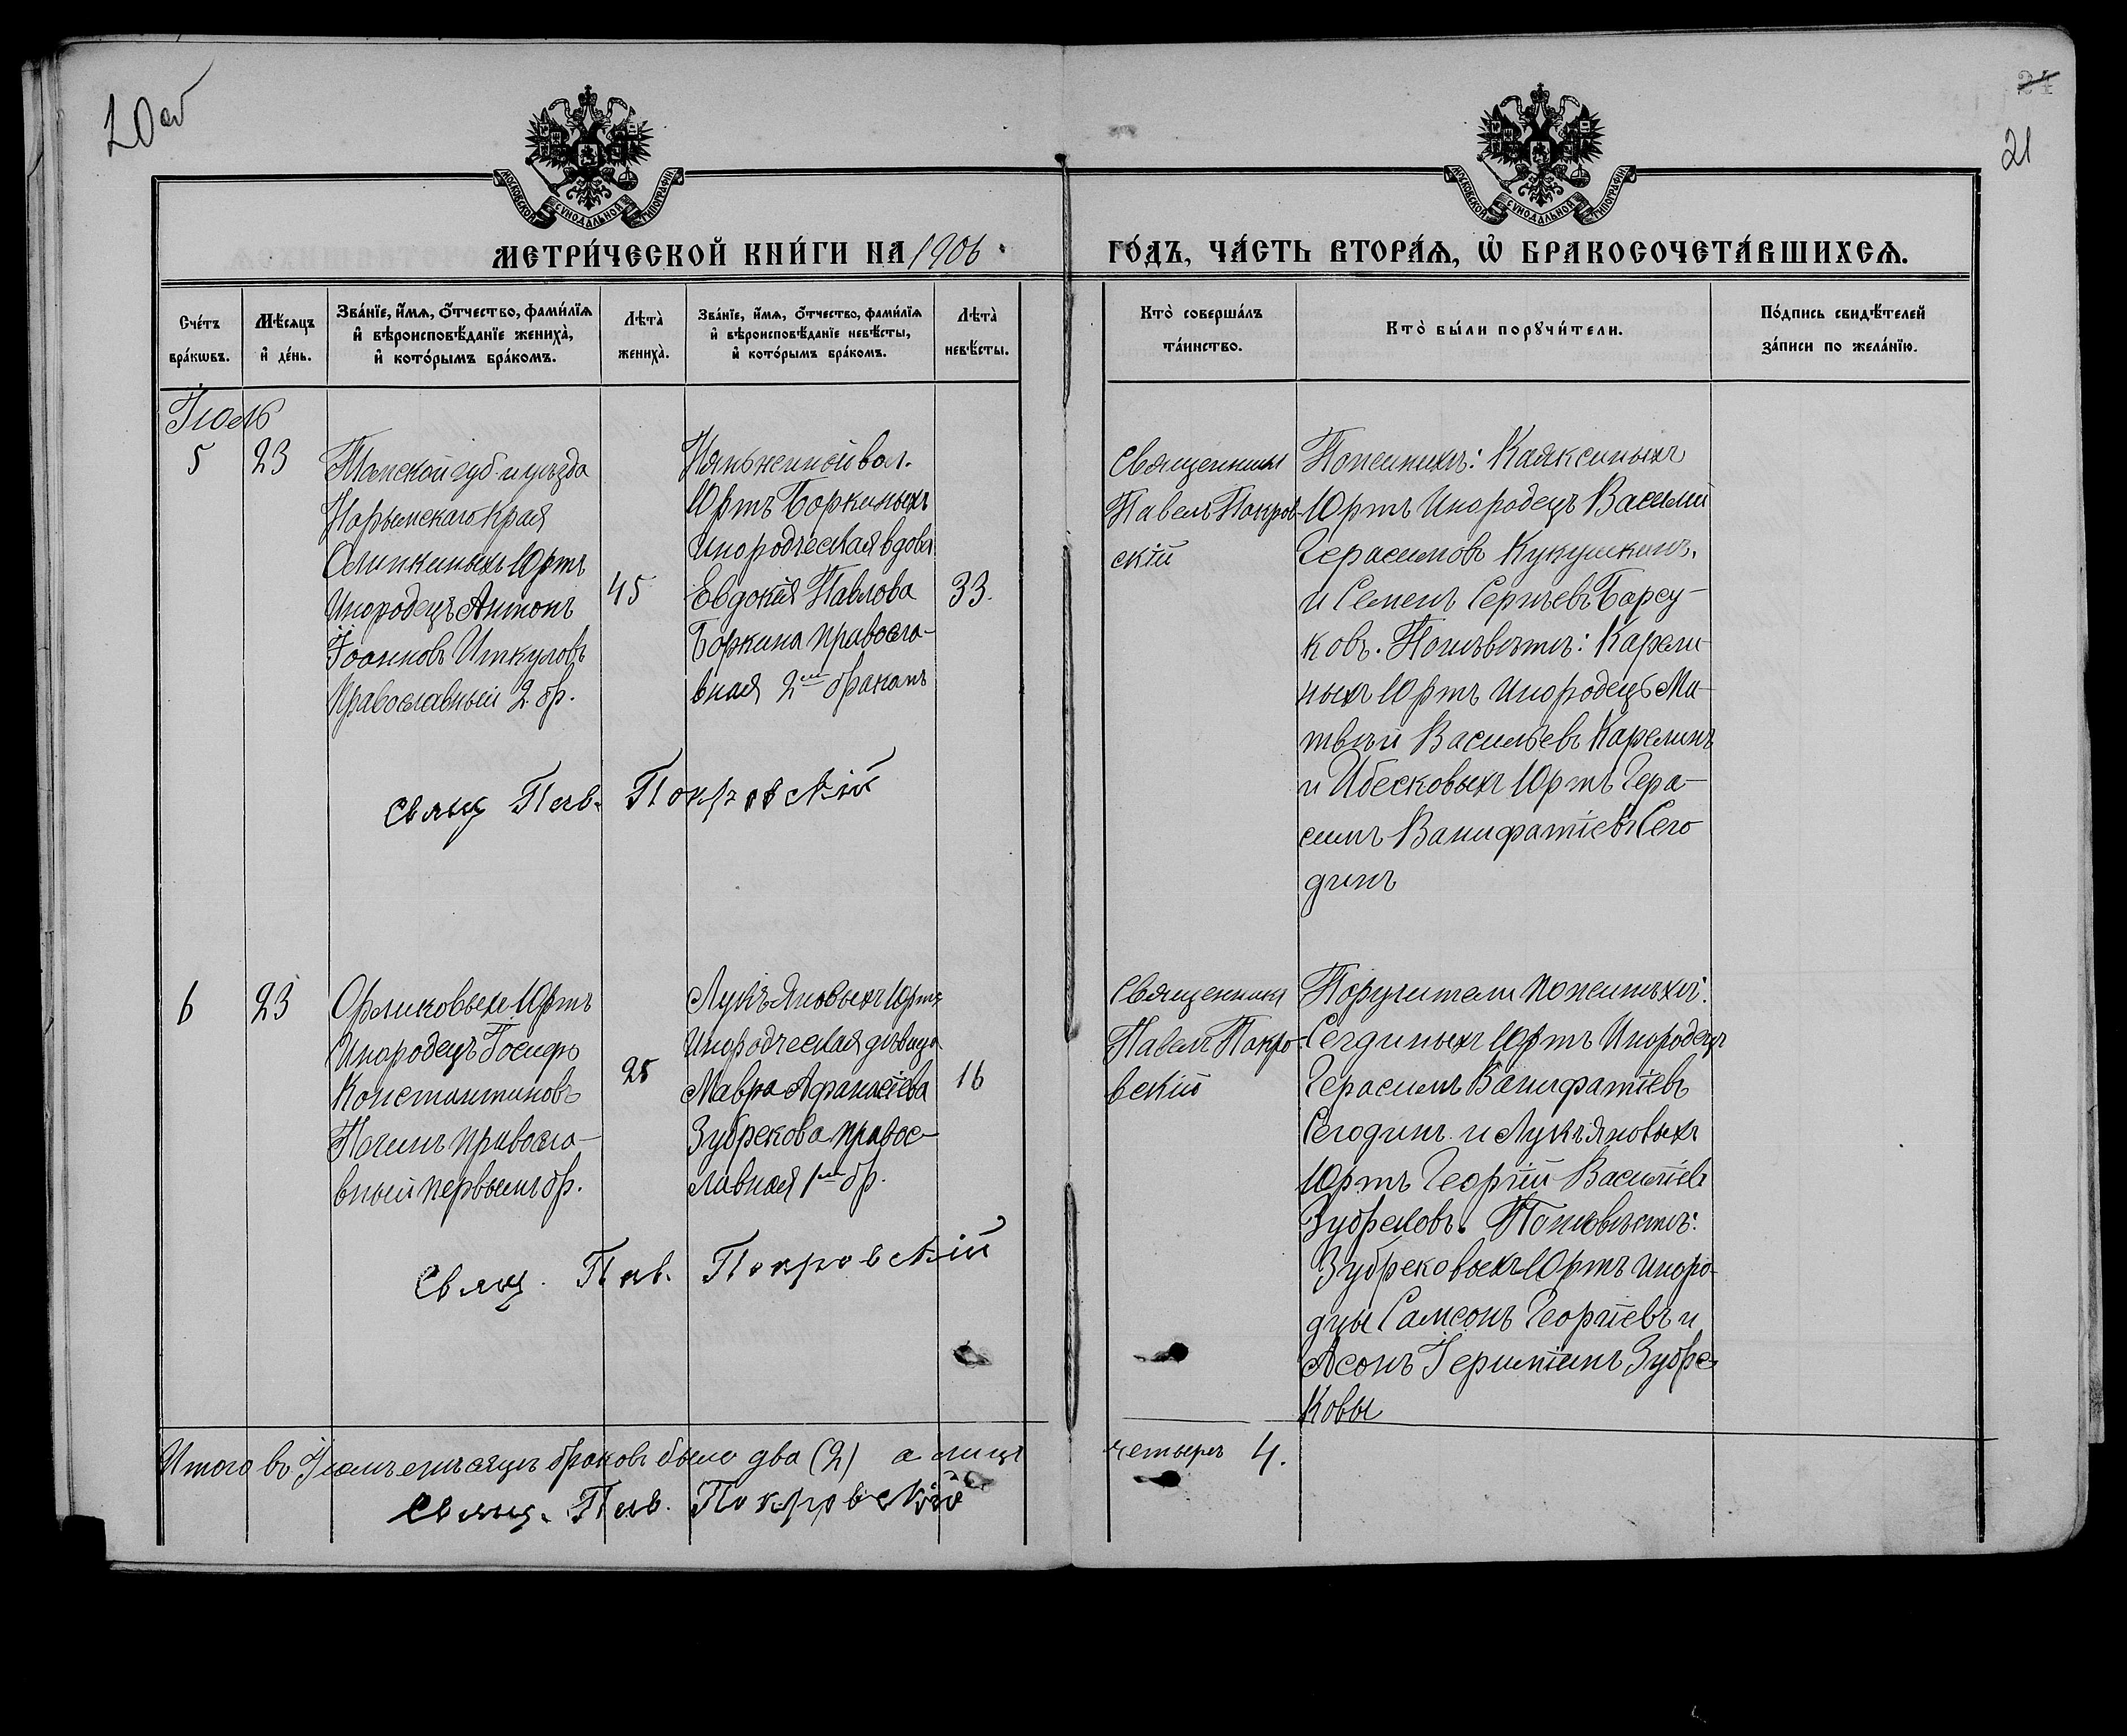 20 об
24
21
МОСКОВСКОЙ СѴНОДАЛЬНОЙ ТИПОГРАФІИ
МОСКОВСКОЙ СѴНОДАЛЬНОЙ ТИПОГРАФІИ
МЕТРИ́ЧЕСКОЙ КНИ́ГИ НА 1906
ГО́ДЪ, ЧА́СТЬ ВТОРА́Ѧ, Ѡ҆ БРАКОСОЧЕТА́ВШИХСѦ.
Сче́тъ
бра́кѡвъ.
Мѣ́сѧцъ
и҆ де́нь.
Зва́нїе, и҆́мѧ, ѻ҆́тчество, фами́лїѧ
и҆ вѣроисповѣ́данїе жениха̀,
и҆ кото́рымъ бра́комъ.
Лѣта̀
жениха̀.
Зва́нїе, и҆́мѧ, ѻ҆́тчество, фами́лїѧ
и҆ вѣроисповѣ́данїе невѣ́сты,
и҆ кото́рымъ бра́комъ.
Лѣта̀
невѣ́сты.
Кто̀ соверша́лъ
та́инство.
Кто̀ бы́ли порꙋчи́тели.
По́дпись свидѣ́телей
за́писи по жела́нїю.
Іюль
5
23
Томской губ. и уѣзда
Нарымскаго края
Юртъ
Инородецъ Антонъ
Іоанновъ Иткуловъ
Православный 2. бр.
45
вол.
Юртъ Боркиныхъ
Инородческая вдова
Евдокія Павлова
Боркина правосла-
вная 2мъ бракомъ
33.
Священникъ
Павелъ Покров-
скій
Пожениху: Каяксиныхъ
Юртъ Инородецъ Василій
Герасимовъ Кукушкинъ,
и Семенъ Сергѣевъ Барсу-
ковъ. Поневѣстѣ: Карели-
ныхъ Юртъ Инородецъ Ма-
твѣй Васильевъ Карелинъ
и Ибесковыхъ Юртъ Гера-
симъ Ванифатіевъ Сего
динъ
Свящ Пав. Покровскій
6
23
Орликовыхъ Юртъ
Инородецъ Іосифъ
Константиновъ
правосла-
вный первымъ бр.
25
Лукъяновыхъ Юртъ
Инородческая дѣвица
Мавра Афанасіева
Зубрекова правос-
лавная 1мъ бр.
16
Священникъ
Павелъ Покро-
вскій
Поручители пожениху:
Юртъ Инородецъ
Герасимъ Ванифатіевъ
Сегодинъ и Лукъяновыхъ
Юртъ Георгій Василіевъ
Зубрековъ. Поневѣстѣ:
Зубрековыхъ Юртъ Иноро-
дцы Самсонъ Георгіевъ и
Зубре-
ковы
Свящ. Пав. Покровскій
Итого въ Іюлѣ мѣсяцѣ браковъ было два (2) а лицъ
четыре 4.
Свящ. Пав. Покровскій